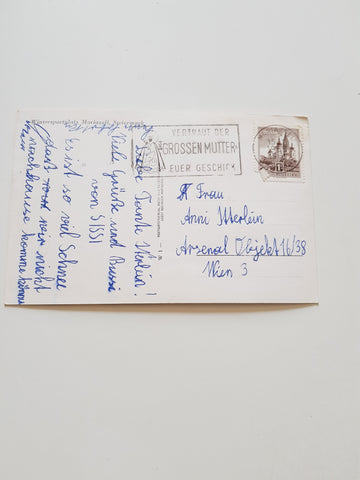 Wintersportplatz Mariazell, Steiermark
Liebe Tante Itterlein!
Viele Grüße und Bussi
von SISSI
Es ist so viel Schnee
daß wir nicht
nachhause komme können
VERTRAUT DER
GROSSEN MUTTER
EUER GESCHICK
Frau
Anni Itterlein
Arsenal Objekt 16/38
Wien 3